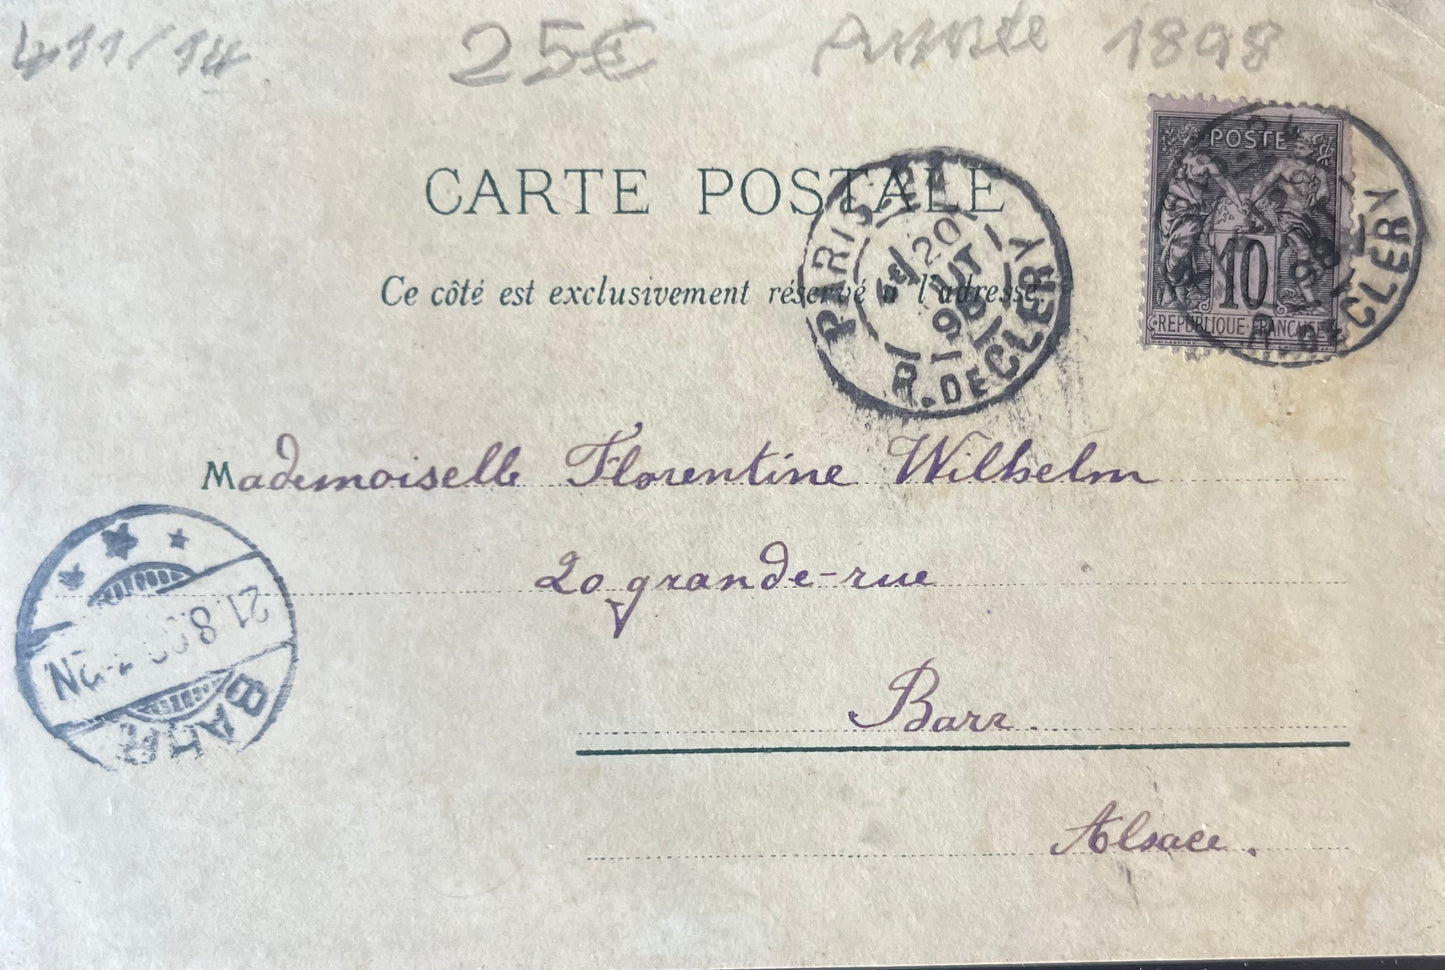 411/14 25€ Année 1898
CARTE POSTALE
POSTE
10
REPUBLIQUE FRANCAISE
R. DE CLERY
PARIS
20
98
R. DE CLERY
Ce côté est exclusivement réservé à l'adresse
Mademoiselle Florentine Wilhelm
20 grande-rue
Barr.
Alsace.
21.8.
N
BARR